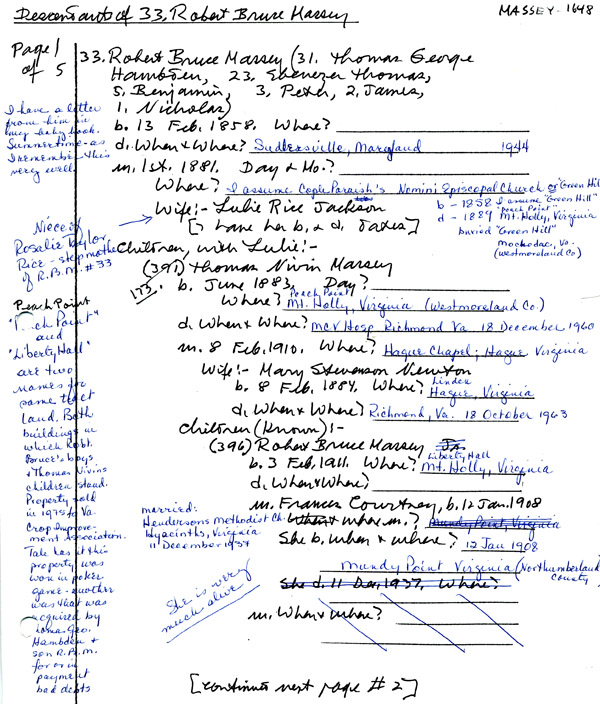 Descendants of 33. Robert Bruce Massey
MASSEY-1648
Page 1
of 5
33. Robert Bruce Massey (31. Thomas George
Hambden, 23. Ebenezer Thomas,
5. Benjamin, 3. Peter, 2. James,
1. Nicholas)
b. 13 Feb. 1858. Where?
d. When & Where? Sudlersville, Maryland 1944
m. 1st. 1881. Day & Mo.?
Where? I assume Cople Paraish's Nomini Episcopal Church or "Green Hill"
Wife:- Lulie Rice Jackson
b - 1858 I assume "Green Hill"
"Peach Point"
d - 1889 Mt. Holly, Virginia
buried "Green Hill"
Machodac, Va.
(Westmoreland Co)
[I have her b. & d. dates]
Children, with Lulie:-
(391) Thomas Nivin Massey
173.
b. June 1883, Day?
Peach Point
Where? Mt. Holly, Virginia (Westmoreland Co.)
d. When & Where? MCV Hosp Richmond Va 18 December 1960
m. 8 Feb. 1910. Where? Hague Chapel; Hague Virginia
Wife:- Mary Stevenson Newton
Linden
b. 8 Feb. 1884, Where? Hague, Virginia
d. When & Where? Richmond, Va. 18 October 1963
Children (Known):-
(396) Robert Bruce Massey Jr.
Liberty Hall
b. 3 Feb. 1911. Where? Mt. Holly, Virginia
d. When & Where?
m. Frances Courtney, b. 12 Jan. 1908
When & where m.? Mundy Point, Virginia
She b. when & where? 12 Jan 1908
Mundy Point Virginia (Northumberland
County)
She d. 11 Dec. 1937. Where?
m. When & where?
[continues next page #2]
I have a letter
from him in
my baby book.
Summertime - as
I remember this
very well.
Niece of
Rosalie Taylor
Rice - stepmother
of R.B.M. #33
Peach Point
"P...ch Point"
and
"Liberty Hall"
are two
names for
same tract
land. Both
buildings in
which Robt.
Bruce's boys
& Thomas Nivins
children stand.
Property sold
in 1975 to Va.
Crop Improve-
ment Association.
Tale has it this
property was
won in poker
game - another
was that was
acquired by
Thomas Geo.
Hambden &
son R.B.M.
for or in
payment
bad debts
married:
Hendersons Methodist Ch.
Hyacinths, Virginia
11 December 1937
She is very
much alive